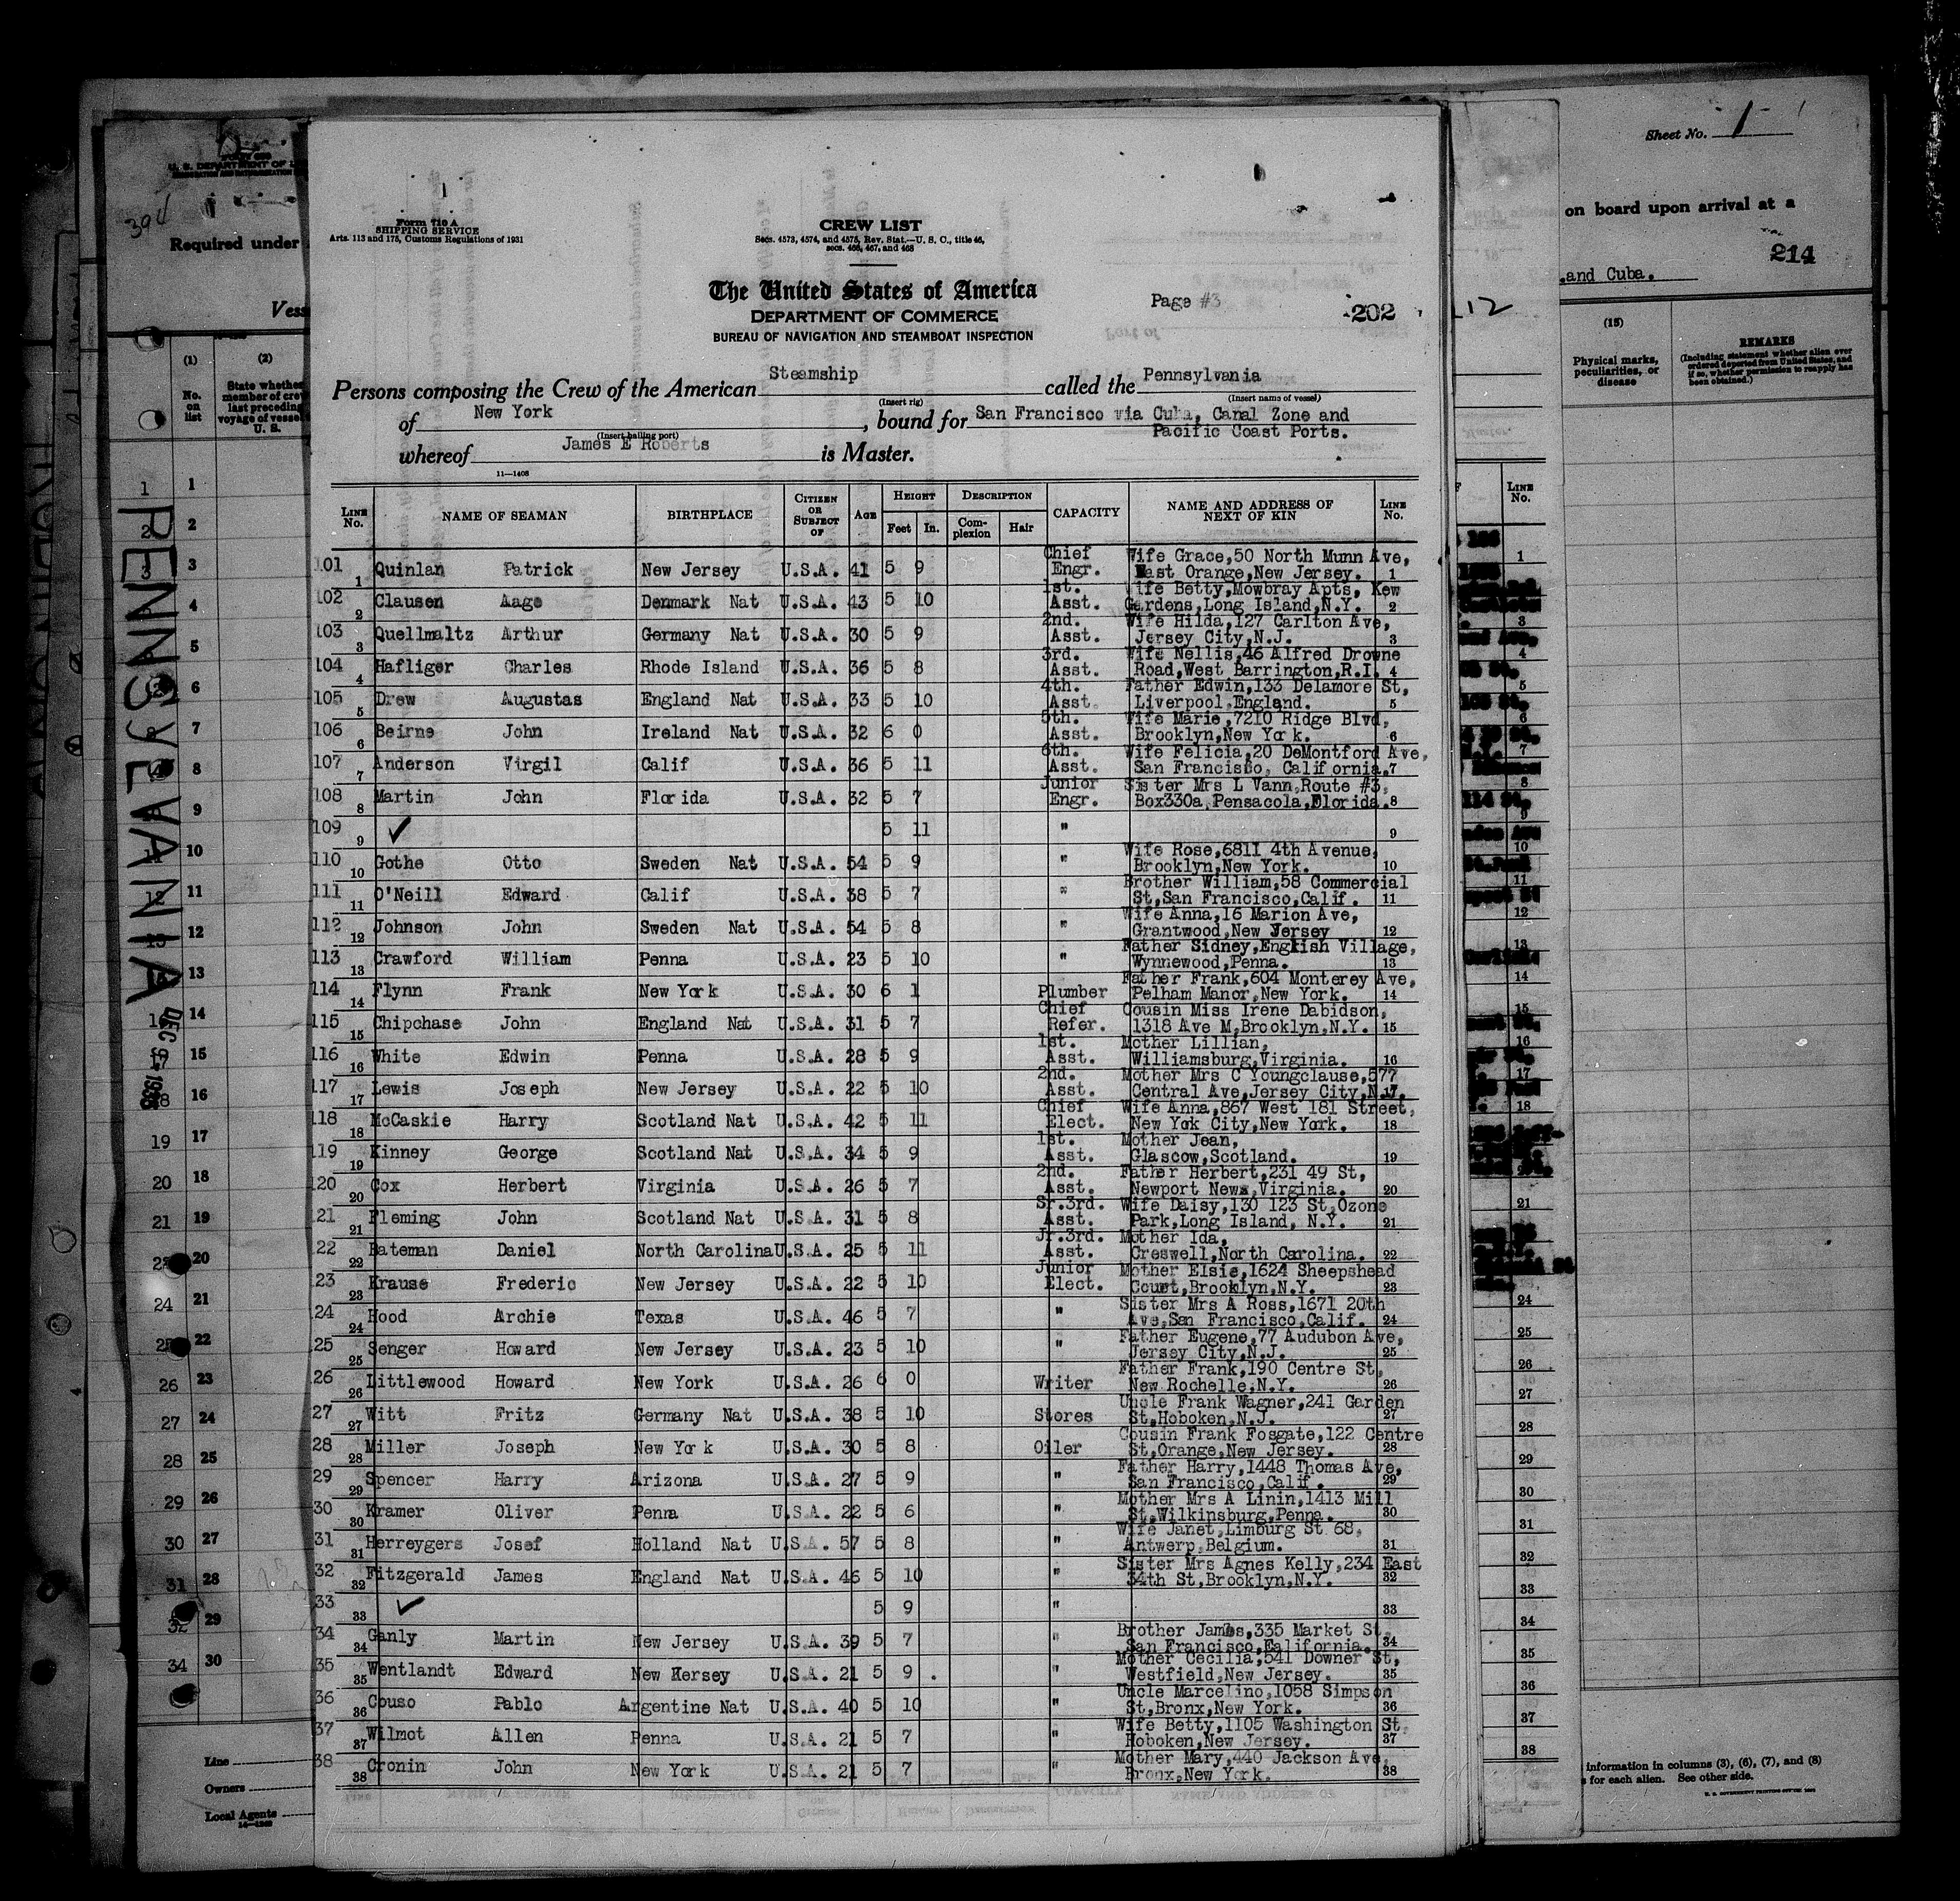 Form 710 A
SHIPPING SERVICE
Arts. 113 and 175, Customs Regulations of 1931
CREW LIST
Secs. 4573, 4574, and 4575, Rev. Stat.—U. S. C., title 46,
secs. 466, 467, and 468
The United States of America
DEPARTMENT OF COMMERCE
BUREAU OF NAVIGATION AND STEAMBOAT INSPECTION
Page #3
202
Persons composing the Crew of the American Steamship called the Pennsylvania
(Insert rig) (Insert name of vessel)
of New York, bound for San Francisco via Cuba, Canal Zone and
(Insert hailing port) Pacific Coast Ports.
whereof James E Roberts is Master.
11—1408
LINE No. NAME OF SEAMAN BIRTHPLACE CITIZEN OR SUBJECT OF AGE HEIGHT Feet In. DESCRIPTION Complexion Hair CAPACITY NAME AND ADDRESS OF NEXT OF KIN LINE No.
101 1 Quinlan Patrick New Jersey U.S.A. 41 5 9 Chief Engr. Wife Grace,50 North Munn Ave, East Orange,New Jersey. 1
102 2 Clausen Aage Denmark Nat U.S.A. 43 5 10 1st. Asst. Wife Betty,Mowbray Apts, Kew Gardens,Long Island,N.Y. 2
103 3 Quellmaltz Arthur Germany Nat U.S.A. 30 5 9 2nd. Asst. Wife Hilda,127 Carlton Ave, Jersey City,N.J. 3
104 4 Hafliger Charles Rhode Island U.S.A. 36 5 8 3rd. Asst. Wife Nellis,46 Alfred Drowne Road,West Barrington,R.I. 4
105 5 Drew Augustas England Nat U.S.A. 33 5 10 4th. Asst. Father Edwin,133 Delamore St, Liverpool,England. 5
106 6 Beirne John Ireland Nat U.S.A. 32 6 0 5th. Asst. Wife Marie,7210 Ridge Blvd, Brooklyn,New York. 6
107 7 Anderson Virgil Calif U.S.A. 36 5 11 6th. Asst. Wife Felicia,20 DeMontford Ave, San Francisco, California. 7
108 8 Martin John Florida U.S.A. 32 5 7 Junior Engr. Sister Mrs L Vann,Route #3, Box330a,Pensacola,Florida. 8
109 9 ✓ 5 11 " 9
110 10 Gothe Otto Sweden Nat U.S.A. 54 5 9 " Wife Rose,6811 4th Avenue, Brooklyn,New York. 10
111 11 O'Neill Edward Calif U.S.A. 38 5 7 " Brother William,58 Commercial St,San Francisco,Calif. 11
112 12 Johnson John Sweden Nat U.S.A. 54 5 8 " Wife Anna,16 Marion Ave, Grantwood,New Jersey 12
113 13 Crawford William Penna U.S.A. 23 5 10 " Father Sidney,English Village, Wynnewood,Penna. 13
114 14 Flynn Frank New York U.S.A. 30 6 1 Plumber Father Frank,604 Monterey Ave, Pelham Manor,New York. 14
115 15 Chipchase John England Nat U.S.A. 31 5 7 Chief Refer. Cousin Miss Irene Dabidson, 1318 Ave M,Brooklyn,N.Y. 15
116 16 White Edwin Penna U.S.A. 28 5 9 1st. Asst. Mother Lillian, Williamsburg,Virginia. 16
117 17 Lewis Joseph New Jersey U.S.A. 22 5 10 2nd. Asst. Mother Mrs C Youngclause,577 Central Ave,Jersey City,N.J. 17
118 18 McCaskie Harry Scotland Nat U.S.A. 42 5 11 Chief Elect. Wife Anna,867 West 181 Street, New York City,New York. 18
119 19 Kinney George Scotland Nat U.S.A. 34 5 9 1st. Asst. Mother Jean, Glascow,Scotland. 19
120 20 Cox Herbert Virginia U.S.A. 26 5 7 2nd. Asst. Father Herbert,231 49 St, Newport News,Virginia. 20
121 21 Fleming John Scotland Nat U.S.A. 31 5 8 Sr.3rd. Asst. Wife Daisy,130 123 St,Ozone Park,Long Island, N.Y. 21
122 22 Bateman Daniel North Carolina U.S.A. 25 5 11 Jr.3rd. Asst. Mother Ida, Creswell,North Carolina. 22
23 23 Krause Frederic New Jersey U.S.A. 22 5 10 Junior Elect. Mother Elsie,1624 Sheepshead Court,Brooklyn,N.Y. 23
24 24 Hood Archie Texas U.S.A. 46 5 7 " Sister Mrs A Ross,1671 20th Ave,San Francisco,Calif. 24
25 25 Senger Howard New Jersey U.S.A. 23 5 10 " Father Eugene,77 Audubon Ave, Jersey City,N.J. 25
26 26 Littlewood Howard New York U.S.A. 26 6 0 Writer Father Frank,190 Centre St, New Rochelle,N.Y. 26
27 27 Witt Fritz Germany Nat U.S.A. 38 5 10 Stores Uncle Frank Wagner,241 Garden St,Hoboken,N.J. 27
28 28 Miller Joseph New York U.S.A. 30 5 8 Oiler Cousin Frank Fosgate,122 Centre St,Orange,New Jersey. 28
29 29 Spencer Harry Arizona U.S.A. 27 5 9 " Father Harry,1448 Thomas Ave, San Francisco,Calif. 29
30 30 Kramer Oliver Penna U.S.A. 22 5 6 " Mother Mrs A Linin,1413 Mill St,Wilkinsburg,Penna. 30
31 31 Herreygers Josef Holland Nat U.S.A. 57 5 8 " Wife Janet,Limburg St.68, Antwerp,Belgium. 31
32 32 Fitzgerald James England Nat U.S.A. 46 5 10 " Sister Mrs Agnes Kelly,234 East 34th St,Brooklyn,N.Y. 32
33 33 ✓ 5 9 " 33
34 34 Ganly Martin New Jersey U.S.A. 39 5 7 " Brother James,335 Market St, San Francisco,California. 34
35 35 Wentlandt Edward New Kersey U.S.A. 21 5 9 . " Mother Cecilia,541 Downer St, Westfield,New Jersey. 35
36 36 Couso Pablo Argentine Nat U.S.A. 40 5 10 " Uncle Marcelino,1058 Simpson St,Bronx,New York. 36
37 37 Wilmot Allen Penna U.S.A. 21 5 7 " Wife Betty,1105 Washington St, Hoboken,New Jersey. 37
38 38 Cronin John New York U.S.A. 21 5 7 " Mother Mary,440 Jackson Ave, Bronx,New York. 38
394
Required under
(1) No. on list
(2) State whether member of crew last preceding voyage of vessel U. S.
PENNSYLVANIA
DEC
Line
Owners
Local Agents
Sheet No. 1
on board upon arrival at a
214
and Cuba.
12
(15) Physical marks, peculiarities, or disease
REMARKS
(Including statement whether alien ever ordered deported from United States, and if so, whether permission to reapply has been obtained.)
LINE No.
information in columns (3), (6), (7), and (8)
for each alien. See other side.